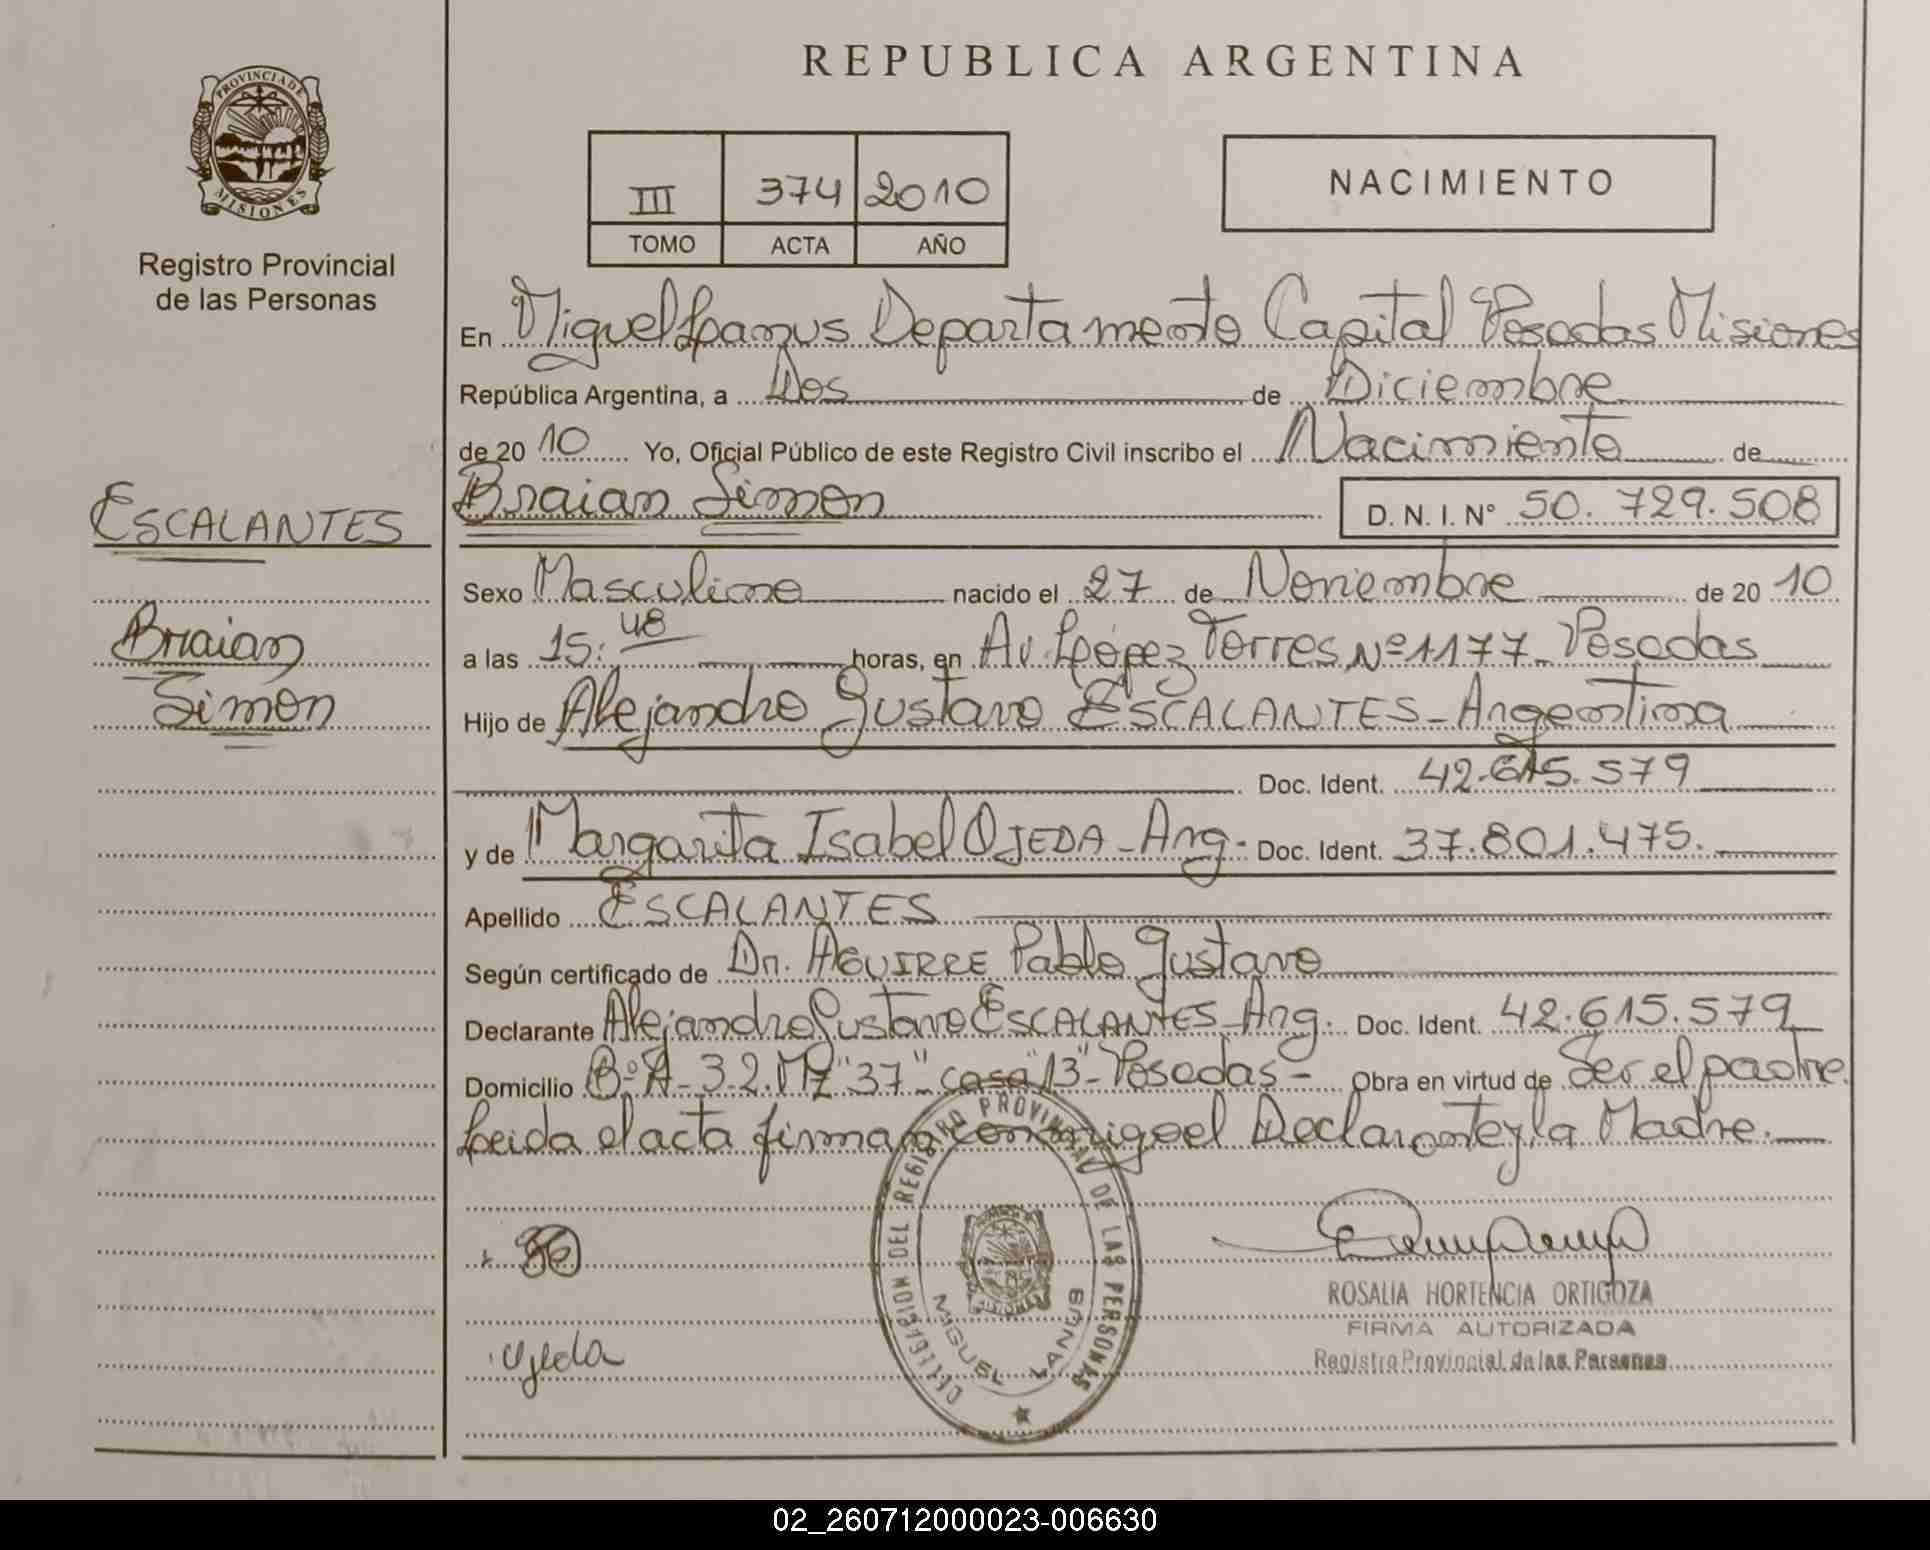 REPUBLICA ARGENTINA
PROVINCIA DE
MISIONES
Registro Provincial
de las Personas
III 374 2010
TOMO ACTA AÑO
NACIMIENTO
En Miguel Lanus Departamento Capital Posadas Misiones
República Argentina, a Dos de Diciembre
de 20 10 Yo, Oficial Público de este Registro Civil inscribo el Nacimiento de
Braian Simon D. N. I. N° 50.729.508
ESCALANTES
Braian
Simon
Sexo Masculino nacido el 27 de Noviembre de 20 10
a las 15:48 horas, en Av. López Torres Nº 1177 - Posadas
Hijo de Alejandro Gustavo ESCALANTES - Argentina
Doc. Ident. 42.615.579
y de Margarita Isabel OJEDA - Arg. Doc. Ident. 37.801.475.
Apellido ESCALANTES
Según certificado de Dr. AGUIRRE Pablo Gustavo
Declarante Alejandro Gustavo ESCALANTES - Arg. Doc. Ident. 42.615.579
Domicilio Bº A-3.2. Mz "37" casa "13" - Posadas - Obra en virtud de Ser el padre
Leida el acta firman conmigo el Declarante y la Madre.
DELEGACION DEL REGISTRO PROVINCIAL DE LAS PERSONAS
MISIONES
MIGUEL LANUS
Ojeda
ROSALIA HORTENCIA ORTIGOZA
FIRMA AUTORIZADA
Registro Provincial de las Personas
02_260712000023-006630